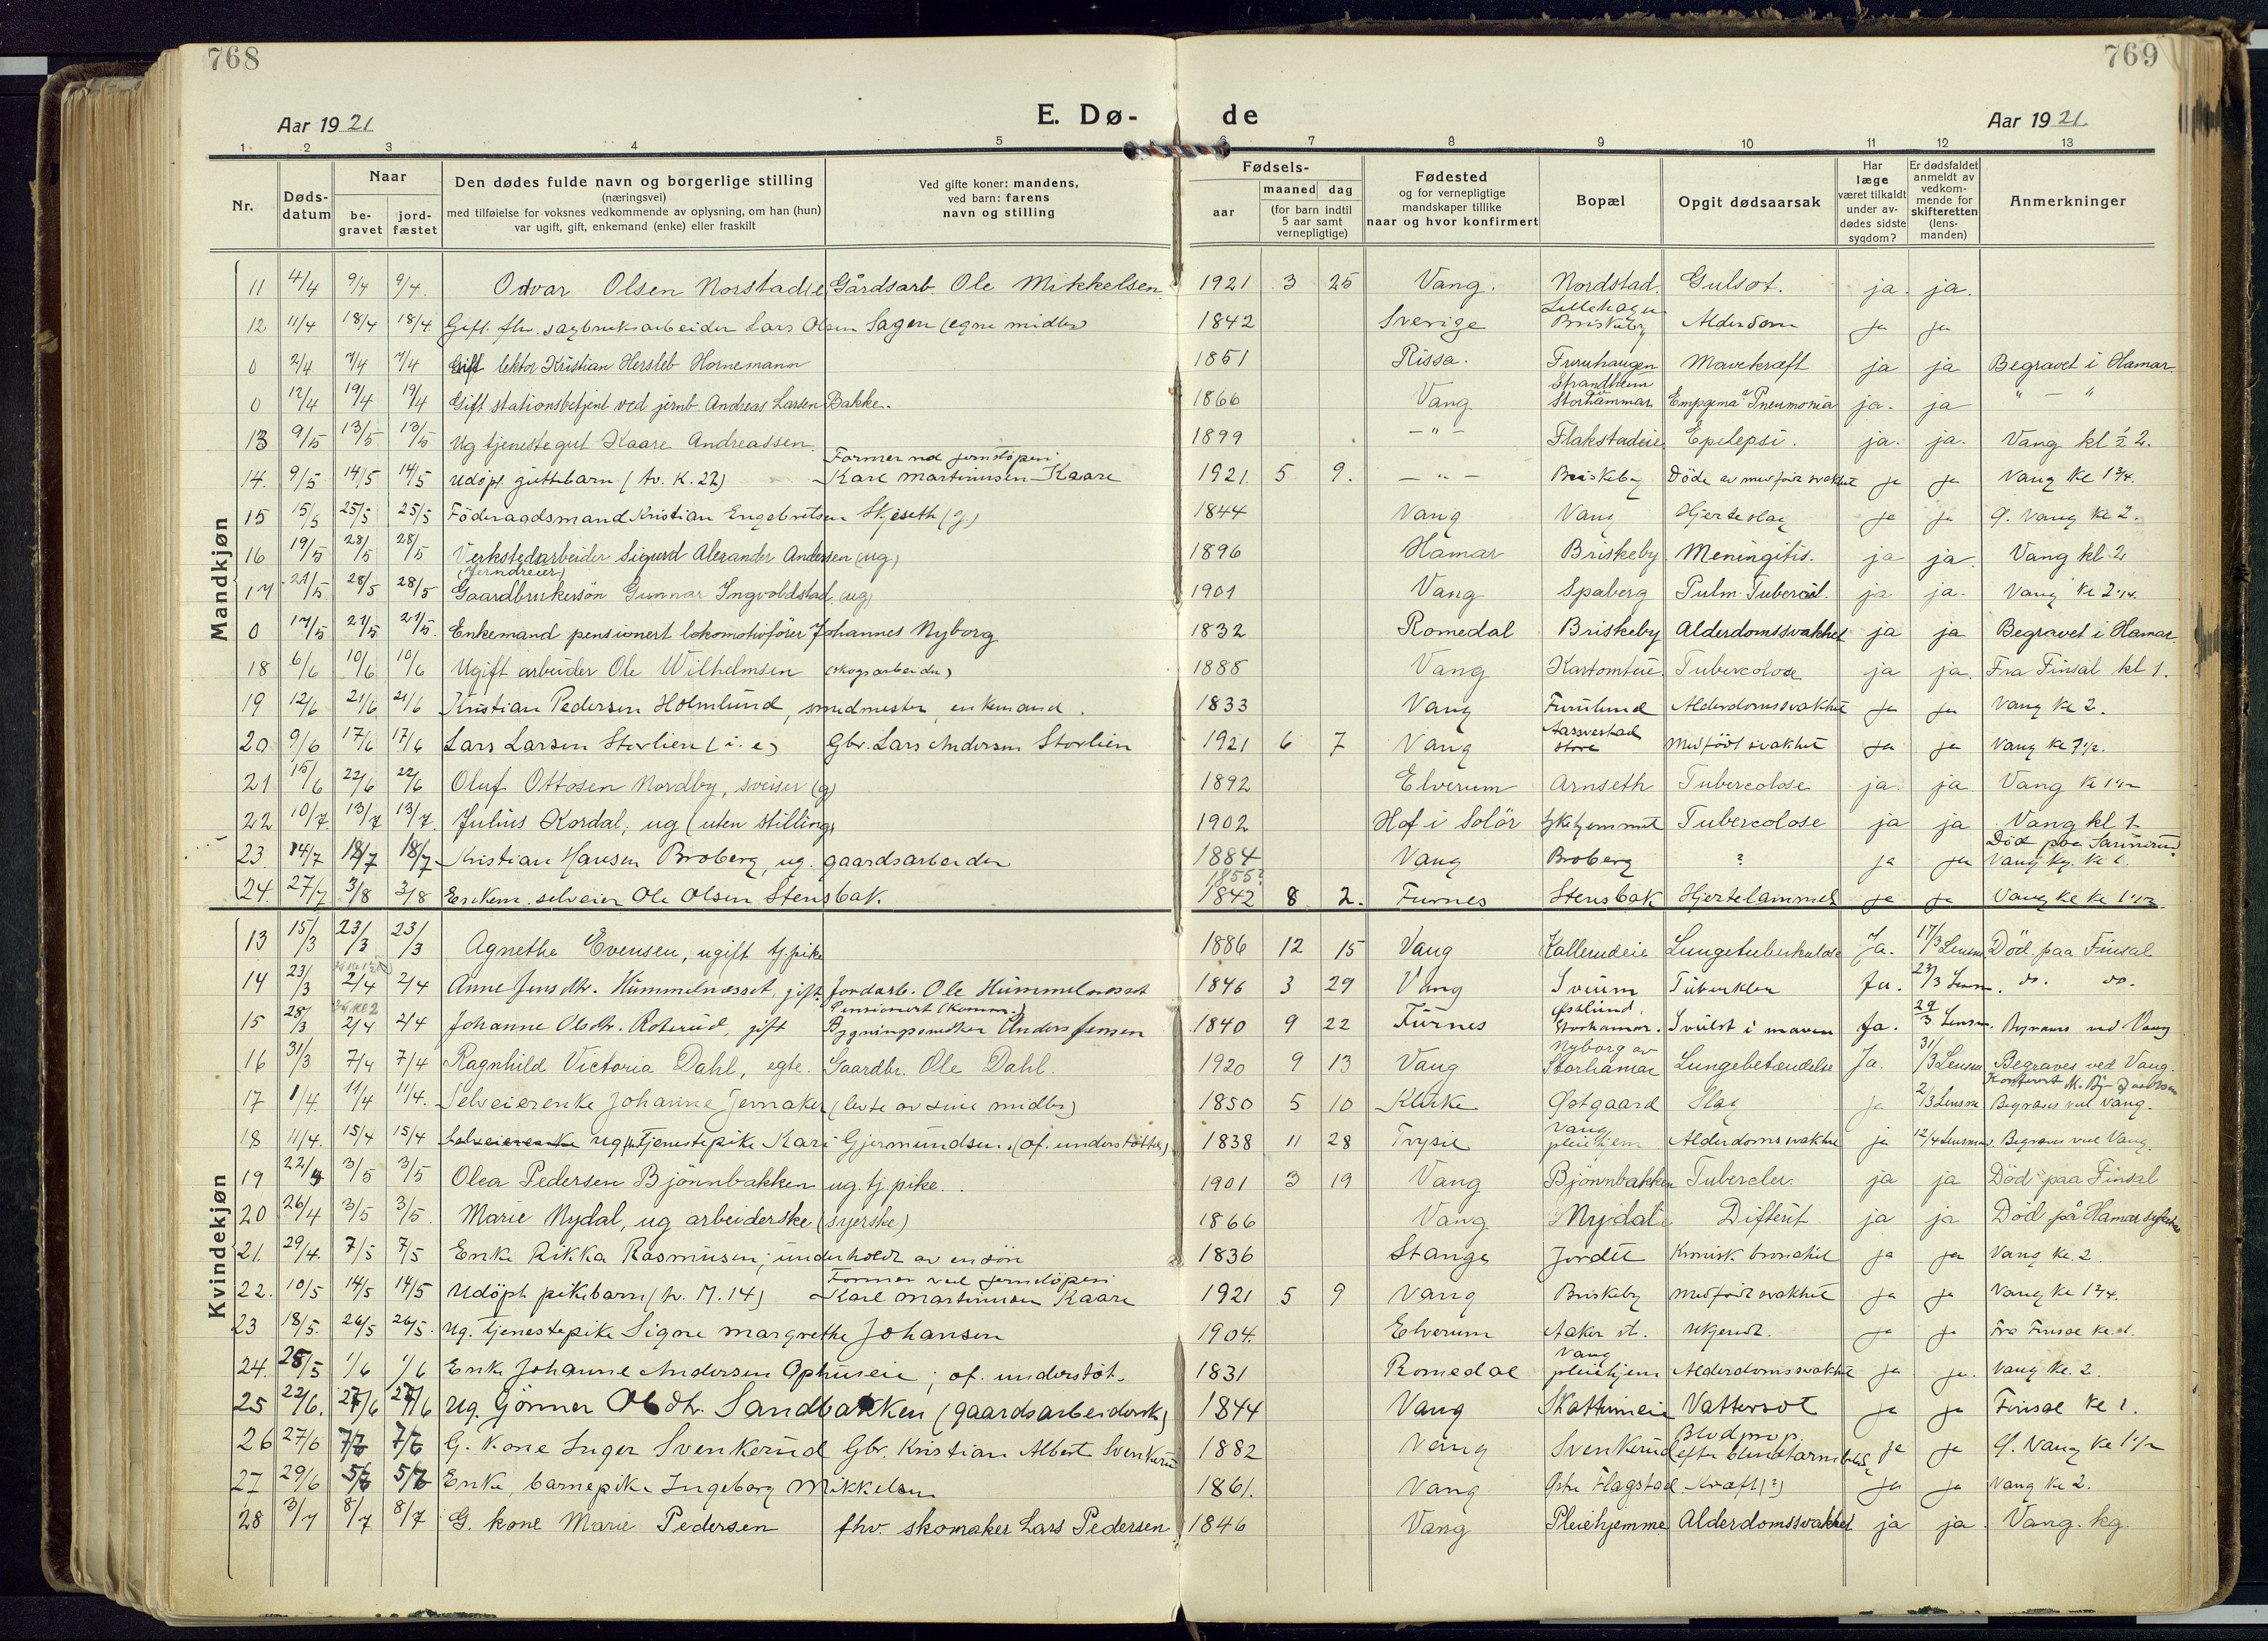 768
769
E. Dø- de
Aar 1921
Aar 1921.
1 2 3 4 5 6 7 8 9 10 11 12 13
Nr.
Døds-datum
Naar
be-gravet
jord-fæstet
Den dødes fulde navn og borgerlige stilling
(næringsvei)
med tilføielse for voksnes vedkommende av oplysning, om han (hun)
var ugift, gift, enkemand (enke) eller fraskilt
Ved gifte koner: mandens,
ved barn: farens
navn og stilling
Fødsels-
aar
maaned dag
(for barn indtil
5 aar samt
vernepligtige)
Fødested
og for vernepligtige
mandskaper tillike
naar og hvor konfirmert
Bopæl
Opgit dødsaarsak
Har
læge
været tilkaldt
under av-
dødes sidste
sygdom?
Er dødsfaldet
anmeldt av
vedkom-
mende for
skifteretten
(lens-
manden)
Anmerkninger
Mandkjøn
11 4/4 9/4 9/4. Odvar Olsen Norstadie Gårdsarb. Ole Mikkelsen 1921 3 25 Vang. Nordstad. Gulsot. ja. ja.
12 11/4 18/4 18/4 Gift. fhv. sagbruksarbeider Lars Olsen Sagen (egne midler) 1842 Sverige Lillehagen Briskeby Alderdom ja ja
0 2/4 7/4 7/4 Gift lektor Kristian Hersleb Hornemann 1851 Rissa. Furuhaugen Mavekræft ja ja Begravet i Hamar.
0 12/4 19/4 19/4 Gift stationsbetjent ved jernb. Andreas Larsen Bakke. 1866 Vang Strandheim Storhammar Empyema Pneumonia ja. ja " — "
13 9/5 13/5 13/5 Ug tjenestegut Kaare Andreassen 1899 — " — Flakstadeie Epelepsi. ja. ja. Vang kl ½ 2.
14. 9/5 14/5 14/5 Udöpt guttebarn (tv. K. 22) Former ved jernstöperi Karl Martinusen Kaare 1921. 5 9. — " — Briskeby Döde av medfödt svakhet ja ja Vang kl 1 3/4.
15 15/5 25/5 25/5 Föderaadsmand Kristian Engebretsen Skjeseth (g.) 1844 Vang Vang Hjerteslag ja ja Vang kl 2.
16 19/5 28/5 28/5 Verkstedarbeider Sigurd Alexander Andersen (ug) (Jerndreier) 1896 Hamar Briskeby Meningitis. ja ja. Vang kl. 2
17 21/5. 28/5 28/5 Gaardbrukersön Gunnar Ingvoldstad. (ug) 1901 Vang Spaberg Pulm. Tubercul. ja ja. Vang kl 2 1/4.
0 17/5 21/5 21/5. Enkemand pensionert lokomotivfører Johannes Nyborg 1832 Romedal Briskeby Alderdomssvakhet ja ja Begravet i Hamar
18 6/6 10/6 10/6 Ugift arbeider Ole Wilhelmsen (skogsarbeider) 1888 Vang Tubercolose ja ja. Fra Finsal kl 1.
19 12/6 21/6 21/6 Kristian Pedersen Holmlund, smedmester, enkemand. 1833 Vang Furulund Alderdomssvakhet ja ja Vang kl 2.
20 9/6 17/6 17/6 Lars Larsen Storlien (i. e.) Gbr. Lars Andersen Storlien 1921 6 7 Vang Aassvestad store Medfödt svakhet ja ja Vang kl 7 1/2.
21 15/6 22/6 22/6 Oluf Ottosen Nordby, sveiser (g) 1892 Elverum Arnseth Tubercolose ja. ja Vang kl 1 1/2
22 10/7. 13/7 13/7. Julius Kordal, ug (uten stilling) 1902 Hof i Solör sykehjemmet Tubercolose ja ja Vang kl 1.
23 14/7 18/7 18/7 Kristian Hansen Broberg, ug. gaardsarbeider 1884 Vang Broberg ? ja ja Död paa Vang kg. kl 1.
24. 27/7 3/8 3/8 Enkem. selveier Ole Olsen Stensbak. 1855? 1842 8 2. Furnes Stensbak Hjertelammels ja ja Vang kl 1 1/2.
Kvindekjøn
13 15/3 23/3 23/3 Agnethe Evensen, ugift tj.pike 1886 12 15 Vang Kallerudeie Lungetuberkulose Ja. 17/3 Lensm Död. paa Finsal
14 23/3 2/4 2/4 Anne Jensdtr. Hummelnæsset, gift. Jordarb. Ole Hummelnæsset 1846 3 29 Vang Svium Tüberkler Ja. 23/3 Lensm. do. do.
15 28/3 2/4 2/4 Johanne Olsdtr. Roterud, gift Pensionert (komm.) Bygningssnedker Anders Jensen 1840 9 22 Fürnes Østlund, Storhamar. Svülst i maven Ja. 29/3 Lensm. Begraves ved Vang
16 31/3 7/4 7/4 Ragnhild Victoria Dahl, egte. Gaardbr. Ole Dahl. 1920 9 13 Vang Nyborg av Storhamar Lungebetændelse Ja. 31/3 Lensm Begraves ved Vang.
17 1/4. 11/4 11/4. Selveierenke Johanne Jernaker (levte av sine midler) 1850 5 10 Østgaard Slag ja 2/3 Lensm Begraves ved Vang.
18 11/4. 15/4 15/4 Selveierenke ug Tjenestepike Kari Gjermundsen. (of. understöttet) 1838 11 28 Trysil Vang pleiehjem Alderdomssvakhet ja 12/4 Lensman. Begraves ved Vang.
19 22/4 3/5 3/5 Olea Pedersen Bjönnbakken ug. tj. pike. 1901 3 19 Vang Bjönnbakken Tubercler. ja ja Död paa Finsal
20 26/4 3/5 3/5. Marie Nydal, ug arbeiderske (syerske) 1866 Vang Nydal Difterit ja ja Död på Hamar sykehus
21. 29/4. 7/5 7/5 Enke Rikka Rasmusen; underholdt av en sön 1836 Stange Jordet Kronisk bronchit ja ja Vang kl. 2
22. 10/5 14/5 14/5 Udöpt pikebarn (tv. M. 14) Former ved jernstöperi Karl Martinusen Kaare 1921 5 9 Vang Briskeby Medfödt svakhet ja ja Vang kl 1 3/4.
23 18/5. 26/5 26/5. Ug. tjenestepike Signe Margrethe Johansen 1904. Elverum Aaker st. ukjendt. ja ja Fra Finsal kl. 1.
24. 28/5 1/6 1/6 Enke Johanne Andersen Ophuseie; of. understöt. 1831 Romedal Vang pleiehjem Alderdomssvakhet ja ja. Vang kl. 2.
25 22/6. 27/6 27/6 Ug. Gjönner Olsdtr. Sandbakken (gaardsarbeiderske) 1844 Vang Skattumeie Vattersot ja ja Finsal kl 1.
26 27/6 7/7 7/7 G. Kone Inger Svenkerud Gbr. Kristian Albert Svenkerud 1882 Vang Svenkerud Blodprop. efter blindtarmbet. ja ja Vang kl 1 1/2
27 29/6 5/7 5/7 Enke, barnepike Ingeborg Mikkelsen 1861. Vang Østre Flagstad Kræft (?) ja ja Vang kl 2.
28 3/7 8/7 8/7 G. kone Marie Pedersen fhv. skomaker Lars Pedersen 1846 Vang Pleiehjemmet Alderdomssvakhet ja ja. Vang. kg.